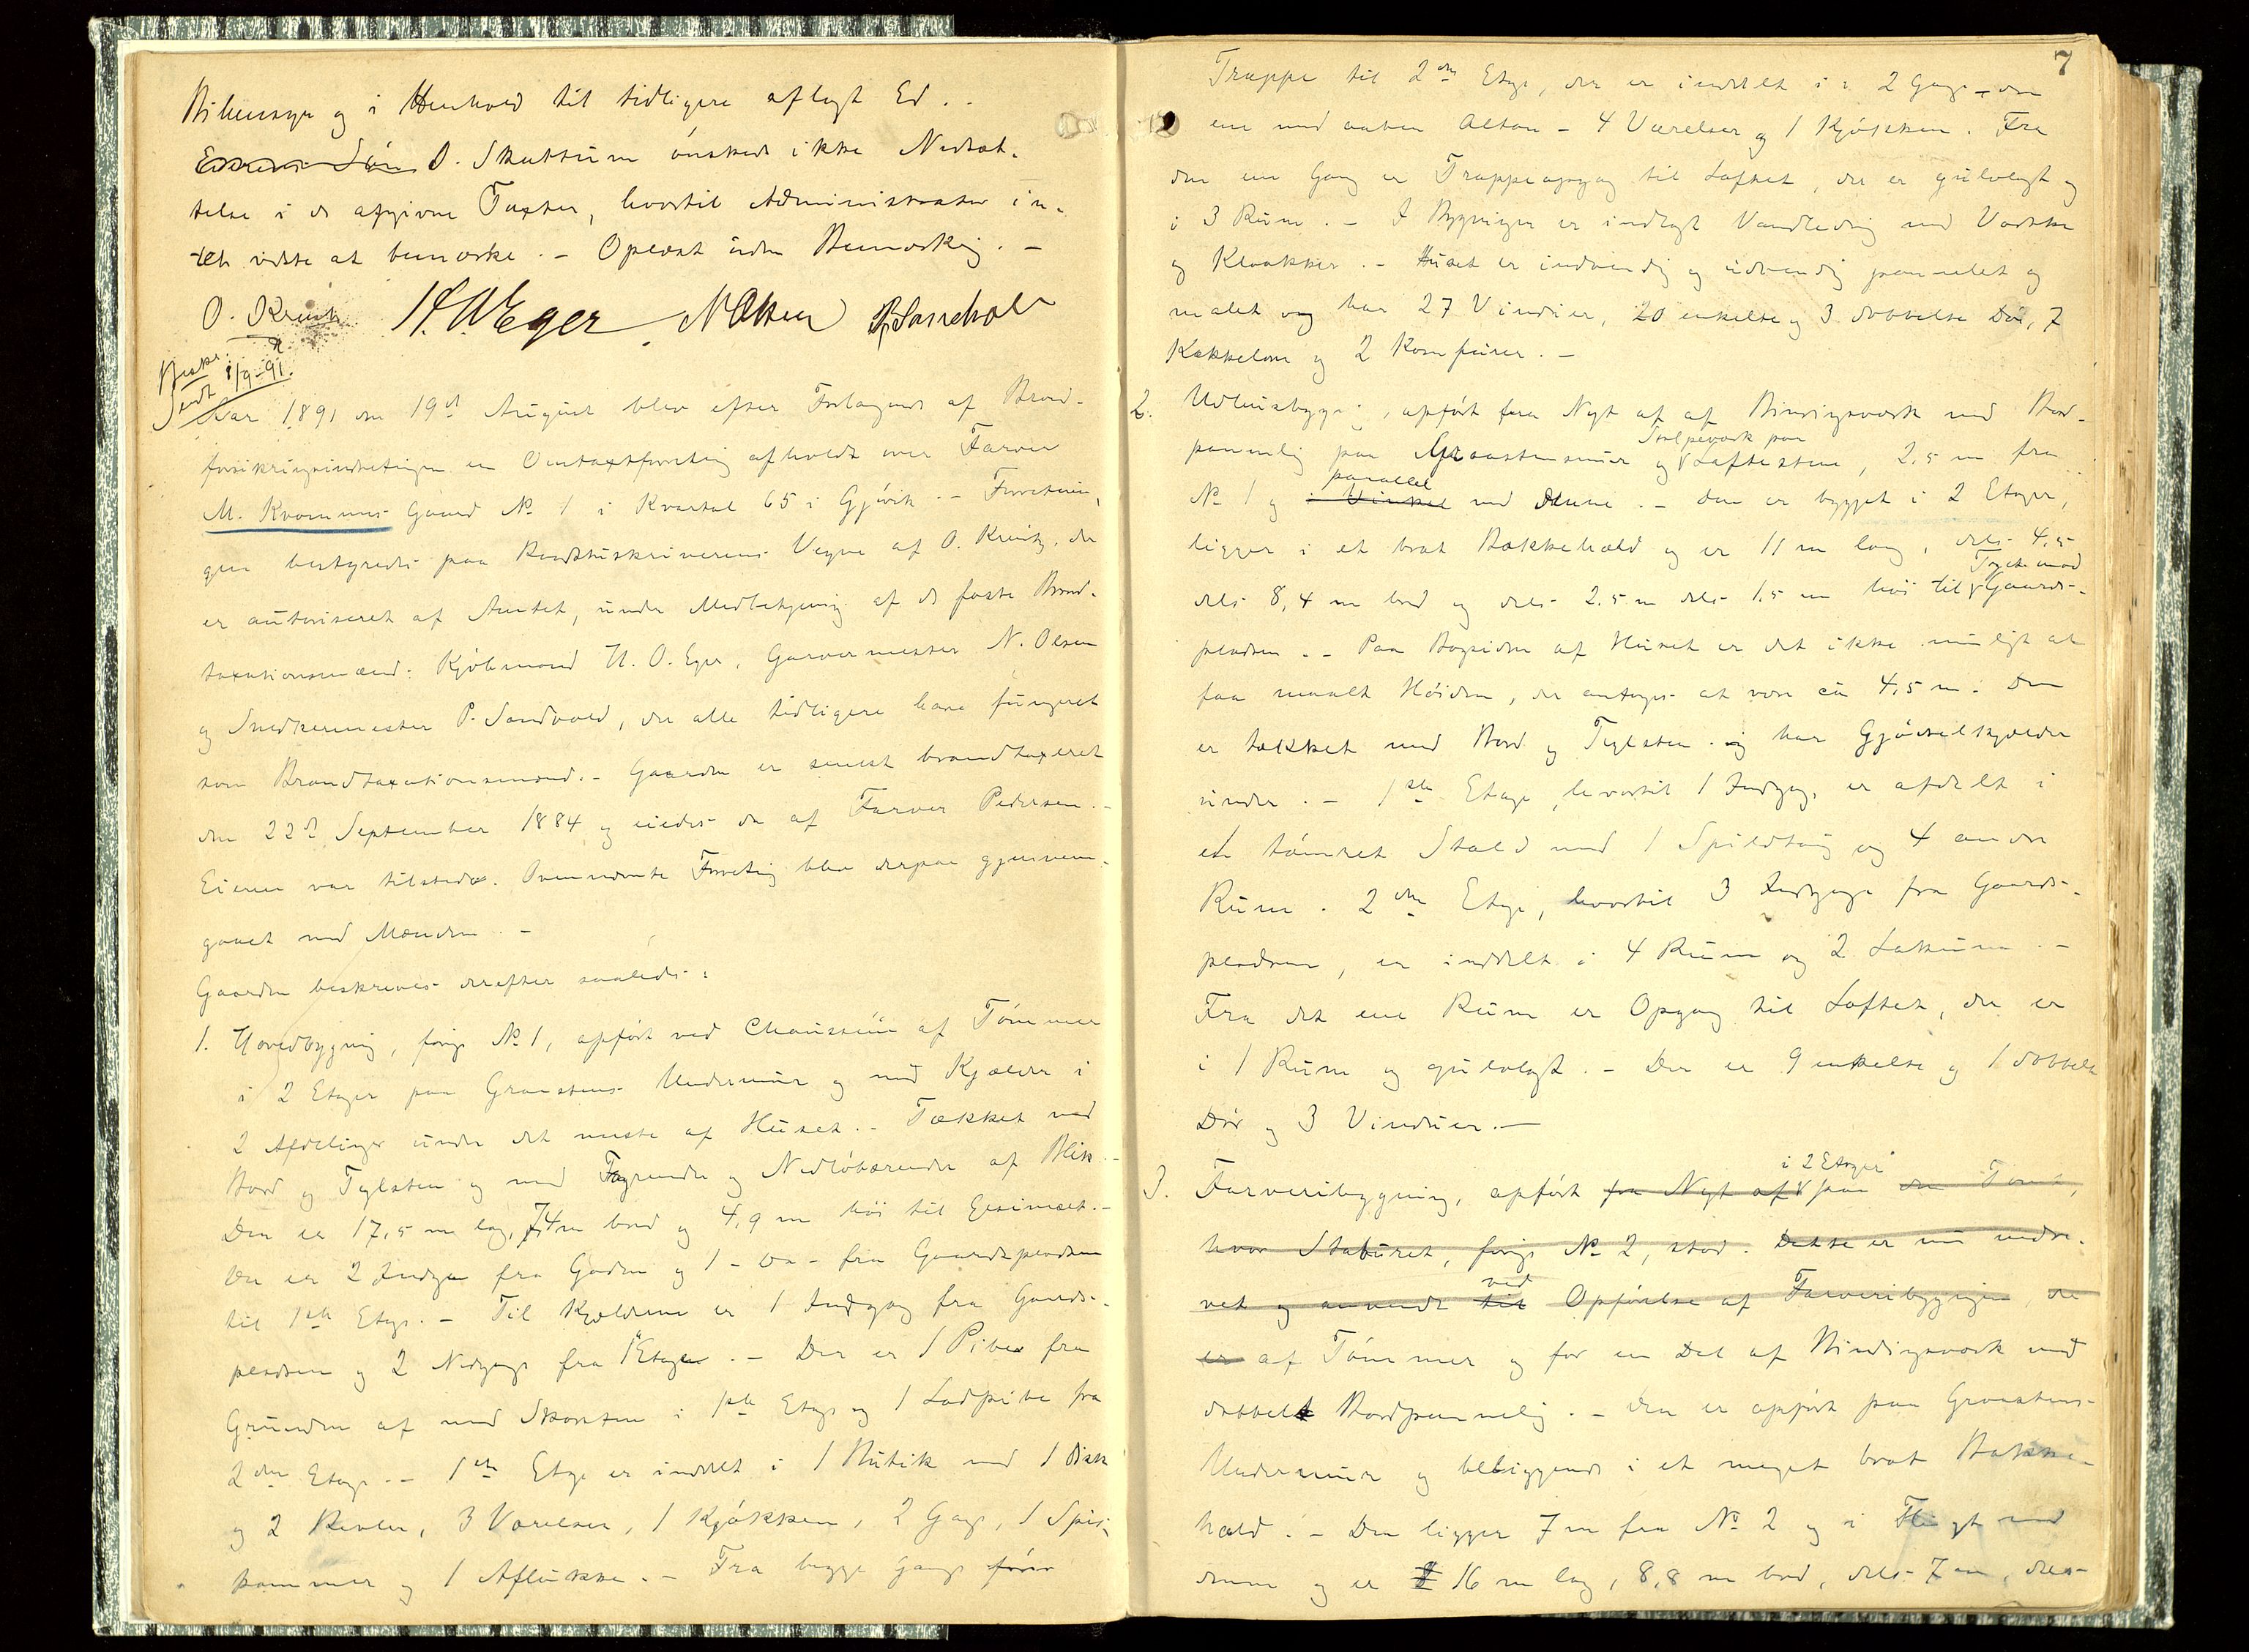 og i Henhold til tidligere aflagt Ed. -
O. Skattum ønskede ikke Nedsæt-
telse i de afgivne Taxter, hvortil Administrator in-
tet vidste at bemærke. - Oplæst uden Bemærkning. -
O. Kreutz H. O. Eger N Olsen P Sandvold
Beskr.
Sendt 1/9-91.
Aar 1891 den 19de August blev efter Forlangende af Brand-
forsikringsindretningen en Omtaxtforretning afholdt over Farver
M. Kvammes Gaard No 1 i Kvartal 65 i Gjøvik. - Forretnin-
gen bestyredes paa Vegne af O. Kreutz, der
er autoriseret af Amtet, under Medbetjening af de faste Brand-
taxationsmænd: Kjøbmand H. O. Eger, Garvermester N. Olsen
og Snedkermester P. Sandvold, der alle tidligere have fungeret
som Brandtaxationsmænd. - Gaarden er senest brandtaxeret
den 22de September 1884 og eiedes da af Farver Pedersen. -
Eieren var tilstede. Ovennævnte Forretning blev derpaa gjennem-
gaaet med Mændene. -
Gaarden beskreves derefter saaledes:
1. Hovedbygning, forrige No 1, opført ved Chausséen af Tømmer
i 2 Etager paa Graastens Undermur og med Kjælder i
2 Afdelinger under det meste af Huset. - Tækket med
Bord og Teglsten og med Tagrender og Nedløbsrender af Blik. -
Den er 17,5 m lang, 7,4 m bred og 4,9 m høi til Gesimset. -
Der er 2 Indgange fra Gaden og 1 - do - fra Gaardspladsen
til 1ste Etage. - Til Kjælderne er 1 Indgang fra Gaards-
pladsen og 2 Nedgange fra 1 Etage. - Der er 1 Pibe fra
Grunden af med Skorsten i 1ste Etage og 1 Ladpibe fra
2den Etage. - 1ste Etage er inddelt i 1 Butik med 1 Disk
og 2 Reoler, 3 Værelser, 1 Kjøkken, 2 Gange, 1 Spis-
kammer og 1 Aflukke. - Fra begge Gange fører
7
Trappe til 2den Etage, der er inddelt i 2 Gange - den
ene med aaben Altan - 4 Værelser og 1 Kjøkken. Fra
den ene Gang er Trappeopgang til Loftet, der er gulvlagt og
i 3 Rum. - I Bygningen er indlagt Vandledning med Vadske
og Kloakker. - Huset er indvendig og udvendig pannelet og
malet og har 27 Vinduer, 20 enkelte og 3 dobbelte Døre, 7
Kakkelovne og 2 Komfurer. -
2. Udhusbygning, opført fra Nyt af af Bindingsværk med Bord-
panneling paa Graastensmur og Stolpeværk paa Løftestene, 2,5 m fra
No 1 og i Vinkel parallel med denne. - Den er bygget i 2 Etager,
ligger i et brat Bakkehæld og er 11 m lang, dels 4,5
dels 8,4 m bred og dels 2,5 m dels 1,5 m høi til Taget mod Gaards-
pladsen. - Paa Bagsiden af Huset er det ikke muligt at
faa maalt Høiden, der antages at være ca 4,5 m. Den
er tækket med Bord og Teglsten og har Gjødselkjælder
under. - 1ste Etage, hvortil 1 Indgang, er afdelt i
en tømret Stald med 1 Spiltaug og 4 andre
Rum. 2den Etage, hvortil 3 Indgange fra Gaards-
pladsen, er inddelt i 4 Rum og 2 Lokum. -
Fra det ene Rum er Opgang til Loftet, der er
i 1 Rum og gulvlagt. - Der er 9 enkelte og 1 dobbelt
Dør og 3 Vinduer. -
3. Farveribygning, opført fra Nyt af i 2 Etager paa den Tomt,
hvor Staburet, forrige No 2, stod. Dette er nu nedre-
vet og anvendt til ved Opførelse af Farveribygningen, der
er af Tømmer og for en Del af Bindingsværk med
dobbelt Bordpanneling. - Den er opført paa Graastens-
Undermur og beliggende i et meget brat Bakke-
hæld. - Den ligger 7 m fra No 2 og i Flugt med
denne og er 16 m lang, 8,8 m bred, dels 7 m, dels